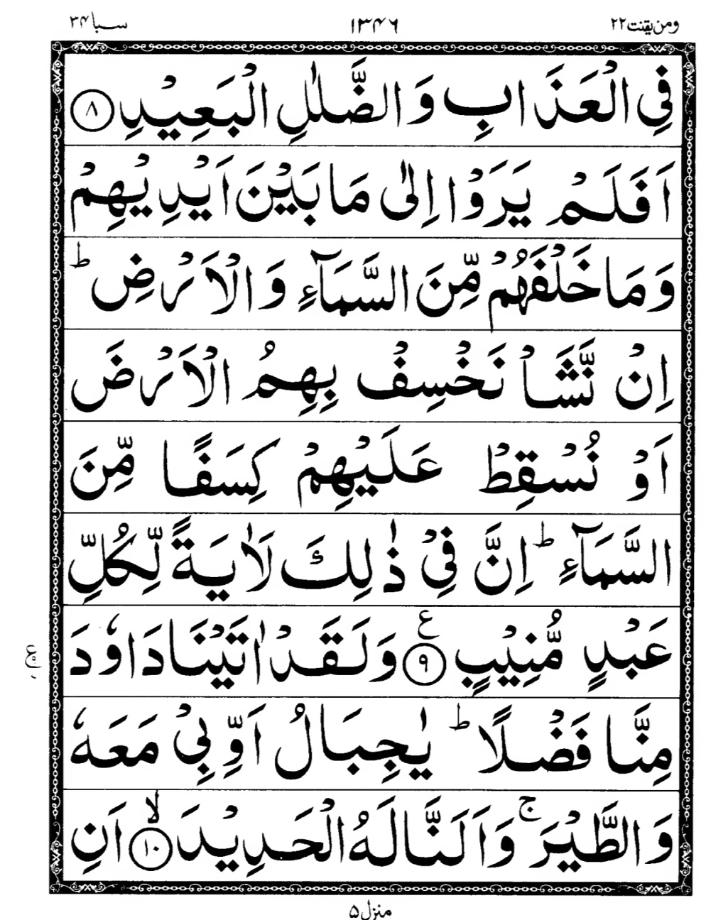 ومن یقنت ۲۲ ۱۳۴۶ سبا ۳۴
فِی الْعَذَابِ وَ الضَّلٰلِ الْبَعِیْدِ ﴿۸﴾
اَفَلَمْ یَرَوْا اِلٰی مَا بَیْنَ اَیْدِیْهِمْ
وَ مَا خَلْفَهُمْ مِّنَ السَّمَآءِ وَ الْاَرْضِ ؕ
اِنْ نَّشَاْ نَخْسِفْ بِهِمُ الْاَرْضَ
اَوْ نُسْقِطْ عَلَیْهِمْ كِسَفًا مِّنَ
السَّمَآءِ ؕ اِنَّ فِیْ ذٰلِكَ لَاٰیَةً لِّكُلِّ
عَبْدٍ مُّنِیْبٍ ﴿۹﴾ ع وَ لَقَدْ اٰتَیْنَا دَاوٗدَ
مِنَّا فَضْلًا ؕ یٰجِبَالُ اَوِّبِیْ مَعَهٗ
وَ الطَّیْرَ ۚ وَ اَلَنَّا لَهُ الْحَدِیْدَ ﴿۱۰﴾ ۙ اَنِ
منزل ۵